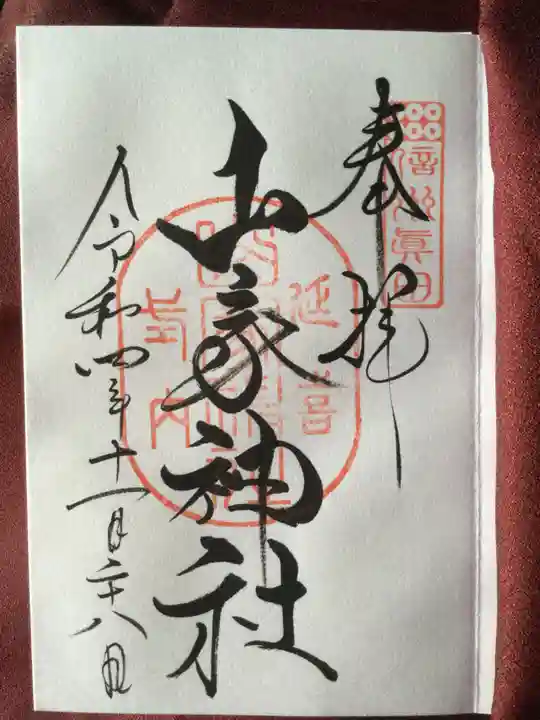 奉拝
信州眞田
山家神社
延喜
式内
令和四年十一月二十八日